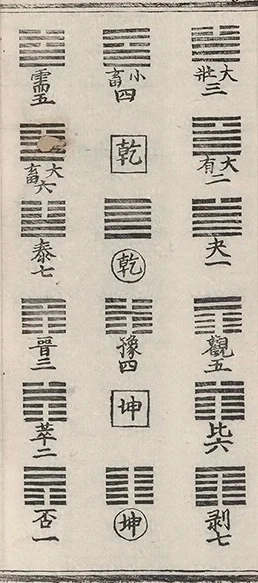 大壯三
小畜四
需五
乾
大有二
大畜六
夬一
乾
泰七
觀五
豫四
晉三
坤
比六
萃二
剥七
坤
否一